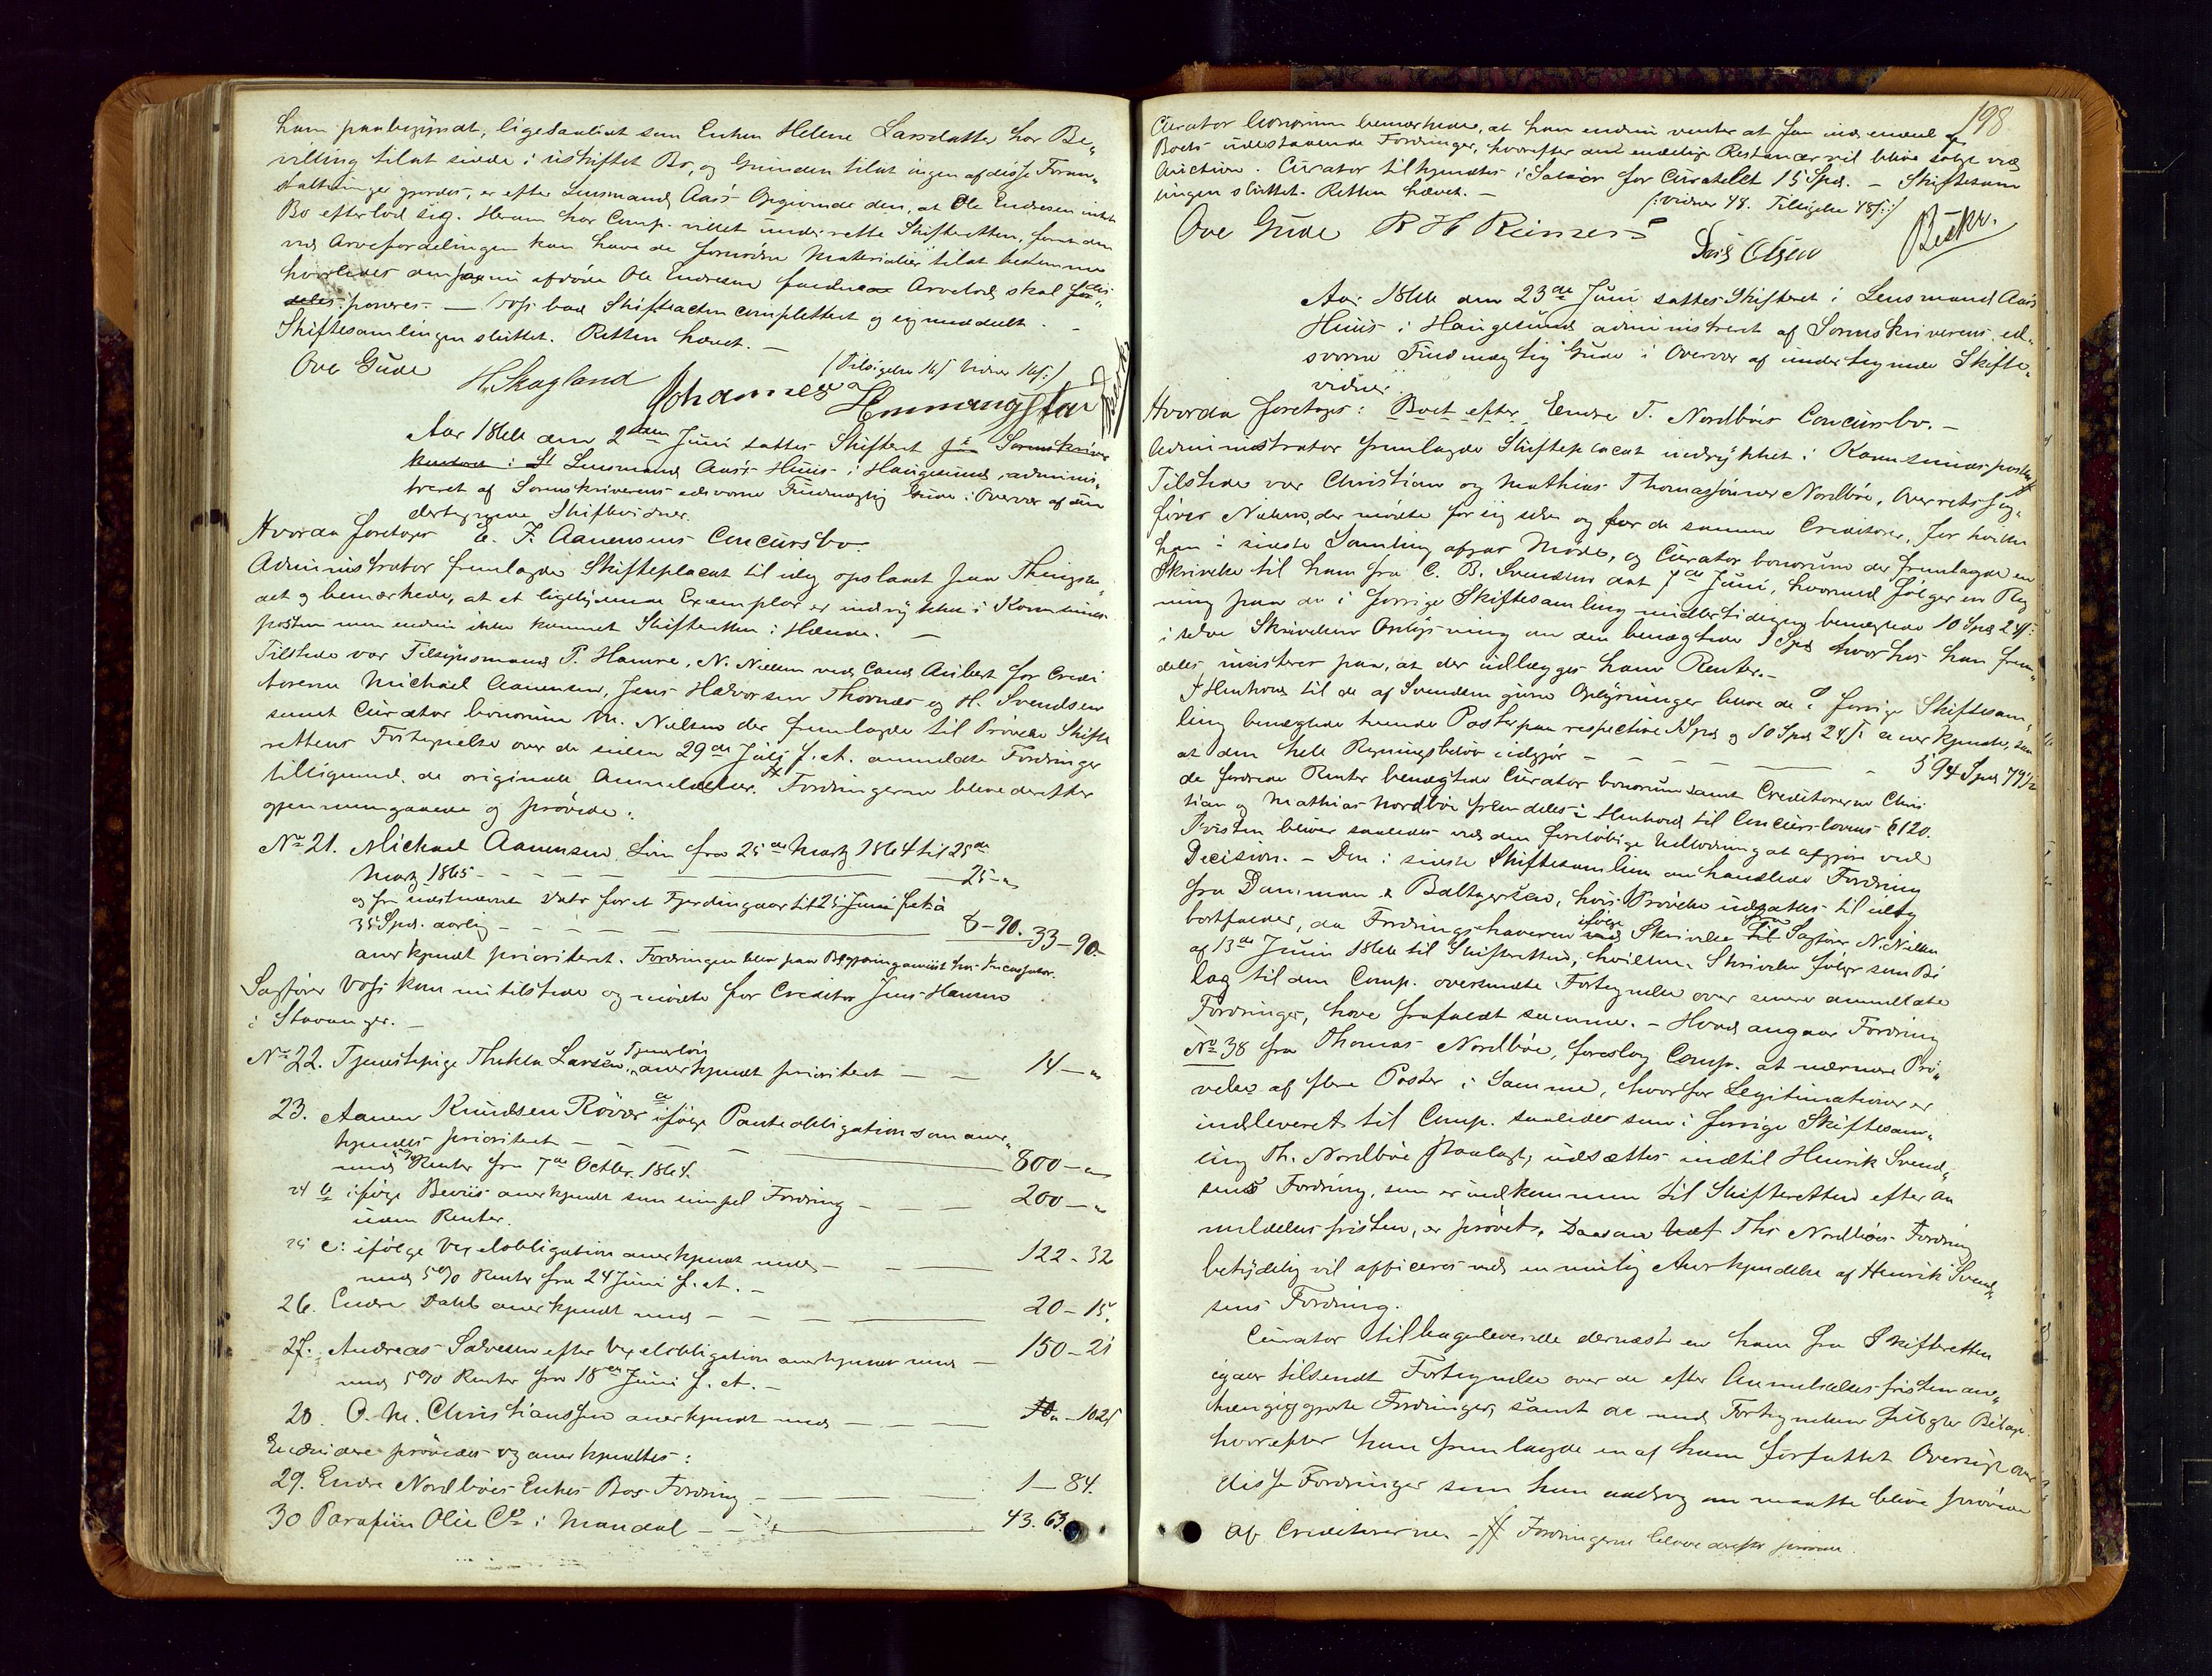 ham paabegyndt, ligesaalidt som Enken Helene Larsdatter har Be„
villing til at sidde i uskiftet Bo, og Grunden til at ingen af disse Foran„
staltninger gjordes, er efter Lensmand Aas's Opgivende den, at Ole Endresen intet
Bo efterlod sig. Herom har Comp. villet underrette Skifteretten, forat den
ved Arvefordelingen kan have de fornødne Materialier til at bestemme
hvorledes den paa nu afdøde Ole Endresen faldne Arvelod skal
poneres. — Voss bad Skifteacten completteret og sig meddeelt. –
Skiftesamlingen sluttet. Retten hævet. —
(Tilsigelse 16/ Vidner 16/:)
Ove Gude H. Skogland Johannes Hemmingstad
Aar 1866 den 2den Juni sattes Skifteret Sorenskriver
Lensmand Aas's Huus i Haugesund, admini„
streret af Sorenskriverens edsvorne Fuldmægtig Gude i Overvær af un
dertegnede Skiftevidner.
Hvorda foretages E. F. Aanensens Concursbo.
Administrator fremlagde Skifteplacat til idag opslaaet paa Thingste
det og bemærkede, at et ligelydende Exemplar er indrykket i Karmsunds-
posten men endnu ikke kommet Skifteretten i Hænde. —
Tilstede var Tilsynsmand P. Hamre, N. Nielsen ved Cand. Aubert for Credi
torerne Michael Aanensen, Jens Halvorsen Thornæs og H. Svendsen
samt Curator bonorum M. Nielsen der fremlagde til Prøvelse Skifte
rettens Fortegnelse over de siden 29de Juli f. A. anmeldte Fordringer
tilligemed de originale Anmeldelser. Fordringerne bleve derefter
gjennemgaaede og prøvede:
No 21. Michael Aanensen Løn fra 25de Marts 1864 til 25de
Marts 1865 – – – – 25 – „
og fra næstnævnte Dato for et Fjerdingaar til 25 Juni f. A. à
35 Spd. aarlig – – – – 8 – 90. 33 – 90.
anerkjendt prioriteret. Fordringen blev paa Begjæring anviist hos
Sagfører Voss kom nu tilstede og mødte for Creditor Jens Hansen
i Stavanger. —
No 22. Tjenestepige Thekla Larsen, Tjenerløn anerkjendt prioriteret — — 14 – „
23. Aanen Knudsen Røvær a ifølge Panteobligation som aner„
kjendes prioriteret — — — 800 – „
med Renter fra 7de Octbr. 1864.
24 b ifølge Beviis anerkjendt som simpel Fordring — — 200 – „
uden Renter.
25 c: ifølge Vexelobligation anerkjendt med — — 122 – 32
med 5% Renter fra 24 Juni f. A. —
26. Endre Dahls anerkjendt med — — — 20 – 15.
27. Andreas Salvesen efter Vexelobligation anerkjendt med — 150 – 21
med 5% Renter fra 18de Juni f. A. —
28. O. M. Christianssen anerkjendt med — — „ – 102
Endvidere prøvedes og anerkjendtes:
29. Endre Nordbøes Enkes Bos Fordring — — 1 – 84.
30 Parafiin Olie Co i Mandal — — 43. 63.
198
Curator bonorum bemærkede, at han endnu venter at faa ind endeel af
Boets udestaaende Fordringer, hvorefter den endelige Restance vil blive solgt ved
Auction. Curator tilkjendtes i Salair for Curatellet 15 Spd. — Skiftesam
lingen sluttet. Retten hævet. —
(: Vidner 48. Tilsigelse 48/:)
Ove Gude R H Reimers
Beskr.
Olsen
Aar 1866 den 23de Juni sattes Skifteret i Lensmand Aas's
Huus i Haugesund administreret af Sorenskriverens ed„
svorne Fuldmægtig Gude i Overvær af undertegnede Skifte„
vidner.
Hvorda foretages: Boet efter Endre T. Nordbøes Concursbo. —
Administrator fremlagde Skifteplacat indrykket i Karmsundsposten
Tilstede var Christian og Mathias Thomassønner Nordbøe, Overretssag„
fører Nielsen, der mødte for sig selv og for de samme Creditorer, for hvilke
han i sidste Samling afgav Møde, og Curator bonorum der fremlagde en
Skrivelse til ham fra C. B. Svendsen dat 7de Juni, hvormed følger en Reg
ning paa de i forrige Skiftesamling midlertidigen benægtede 10 Spd 24/:
i selve Skrivelsen Oplysning om den benægtede 1 Spd hvorhos han frem„
deles insisterer paa, at der udlægges ham Renter. —
I Henhold til de af Svendsen givne Oplysninger bleve de i forrige Skiftesam„
ling benægtede tvende Poster paa respective 1 Spd og 10 Spd 24/: anerkjendte, saa
at den hele Regningsbeløb udgjør — — — — 594 Spd 79½
de fordrede Renter benægtede Curator bonorum samt Creditorerne Chris
tian og Mathias Nordbøe fremdeles i Henhold til Concurslovens § 120.
Tvisten bliver saaledes ved den foreløbige Udlodning at afgjøre ved
Decision. — Den i sidste Skiftesamling omhandlede Fordring
fra Damman & Baltzersen, hvis Prøvelse udsattes til idag
bortfalder, da Fordringshaveren ifølge Skrivelse fra Sagfører N. Nielsen
af 13de Juni 1866 til Skifteretten, hvilken Skrivelse følger som Bi
lag til den Comp. oversendte Fortegnelse over senere anmeldte
Fordringer, have frafaldt samme. — Hvad angaar Fordring
No 38 fra Thomas Nordbøe, foreslog Comp. at nærmere Prø„
velse af flere Poster i Samme, hvorfor Legitimationer er
indleveret til Comp. saaledes som i forrige Skiftesam„
ling Th. Nordbøe paalagt, udsættes indtil Henrik Svend„
sens Fordring, som er indkommen til Skifteretten efter An
meldelsesfristen, er prøvet, Ths Nordbøes Fordring
betydelig vil afficeres ved en mulig Anerkjendelse af Henrik Svend„
sens Fordring.
Curator tilbageleverede dernæst en ham fra Skifteretten
igaar tilsendt Fortegnelse over de efter Anmeldelsesfristen an„
hængiggjorte Fordringer, samt de med Fortegnelsen fulgte Bilage.
hvorefter han fremlagde en af ham forfattet Oversigt over
disse Fordringer som han androg om maatte blive prøvede
af Creditorerne. — Fordringerne bleve derefter prøvede.